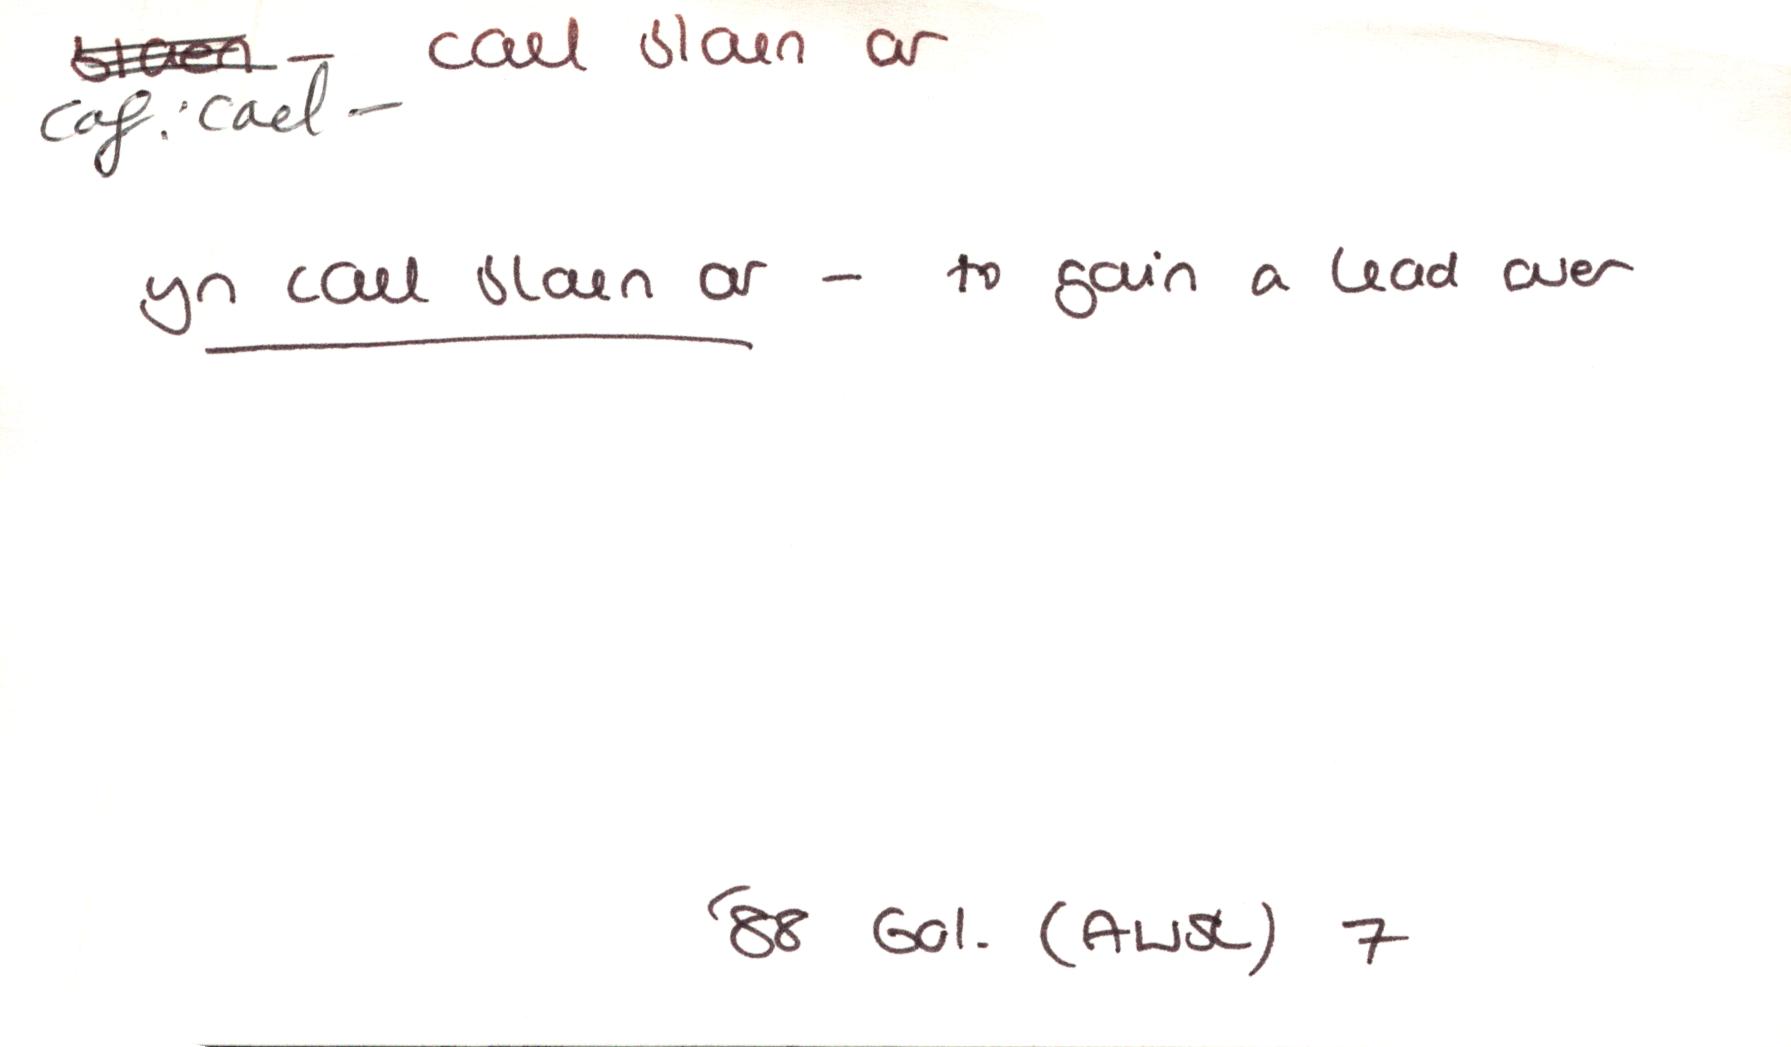 blaen - cael blaen ar
caf: cael -
yn cael blaen ar - to gain a lead over
'88 Gol. (AWST) 7